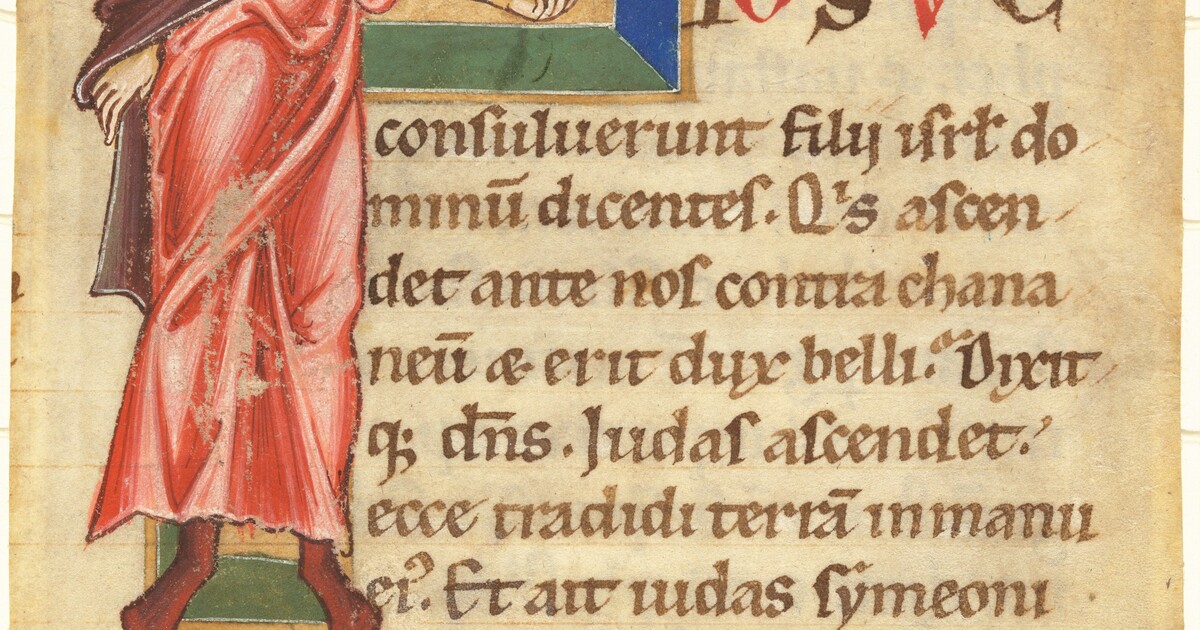 IOSVE
consuluerunt filij isrł do
minū dicentes. Qͥs ascen
det ante nos contra chana
neū & erit dux belli. Dixit
q; dn̄s. Judas ascendet.
ecce tradidi terrā in manu
ei⁹. Et ait iudas symeoni